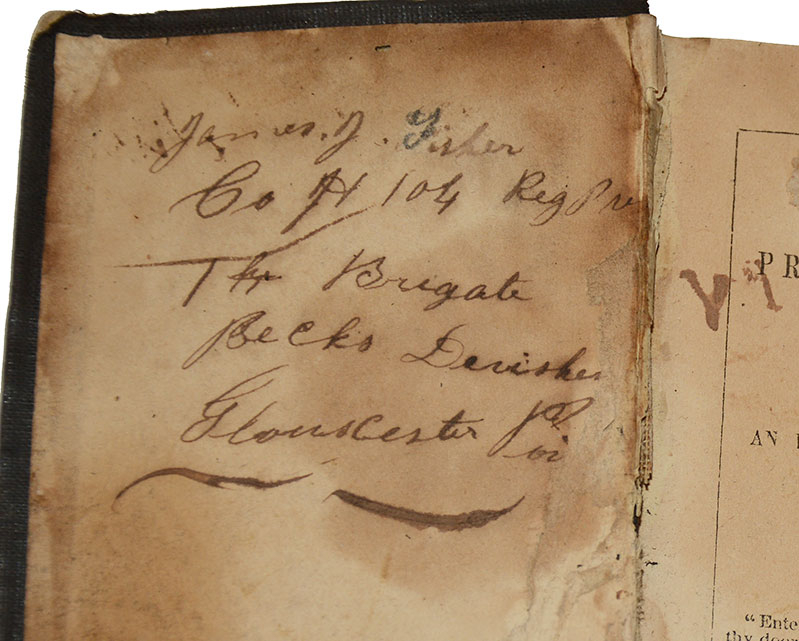 James. D. Fisher
Co H 104 Reg Pv
1st Brigate
Becks Devishen
Gloucester Poi
VI
PR
AN
"Ente
thy door